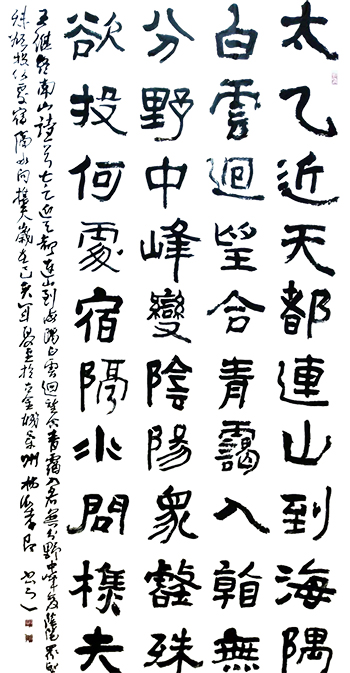 太乙近天都連山到海隅
白雲迴望合青靄入看無
分野中峰變陰陽眾壑殊
欲投何處宿隔水問樵夫
王維終南山詩太乙近天都連山到海隅白雲迴望合青靄入看無分野中峰變陰陽眾壑
殊欲投何處宿隔水問樵夫歲在己亥